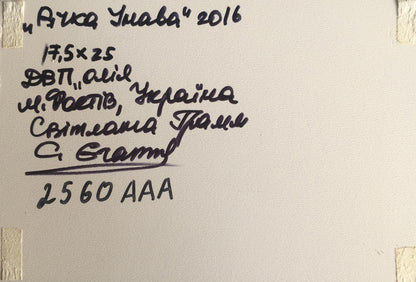 "Річка Унава" 2016
17,5×25
ДВП, олія
м. Фастів, Україна
Світлана Грамм
C. Gramm
2560 AAA